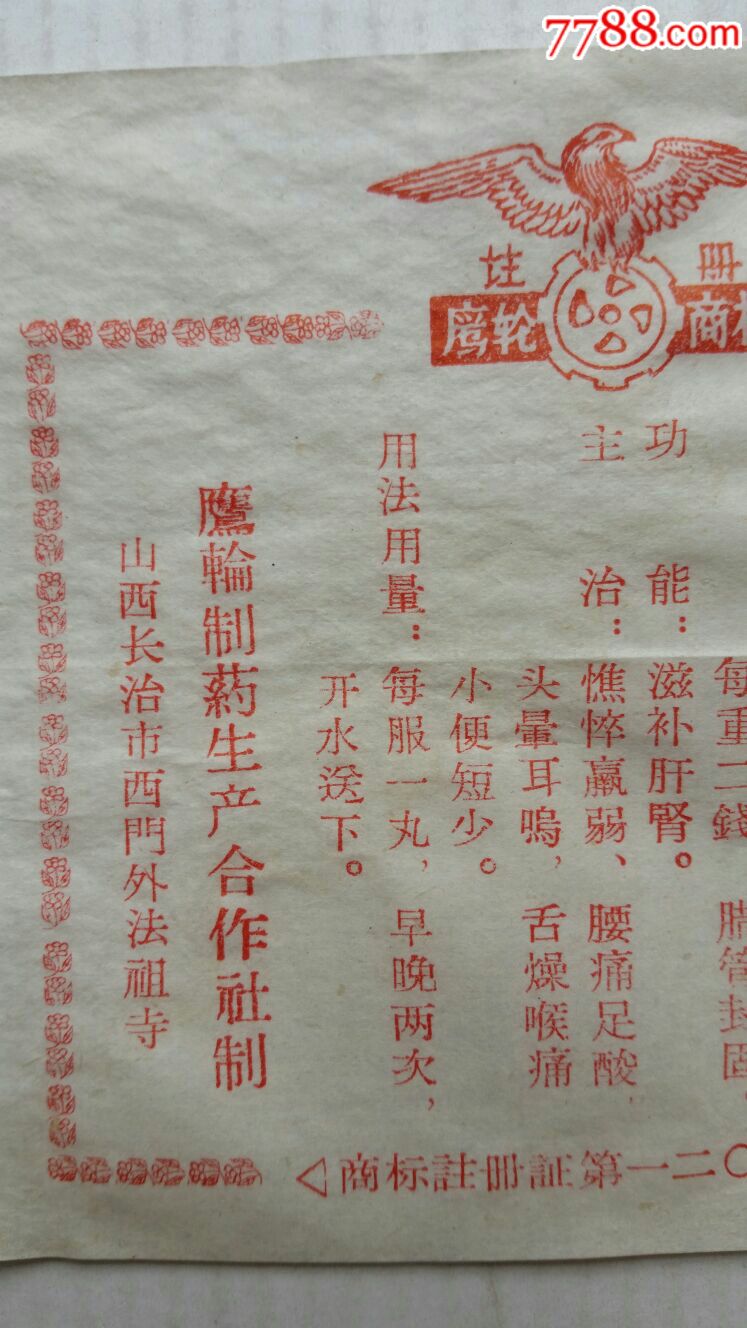 7788.com
註 冊
鹰轮 商标
每重二錢 腊管封固，
功能：滋补肝腎。
主治：憔悴羸弱、腰痛足酸，
头暈耳鳴，舌燥喉痛
小便短少。
用法用量：每服一丸，早晚两次，
开水送下。
鷹輪制葯生产合作社制
山西长治市西門外法祖寺
商标註冊証第一二〇